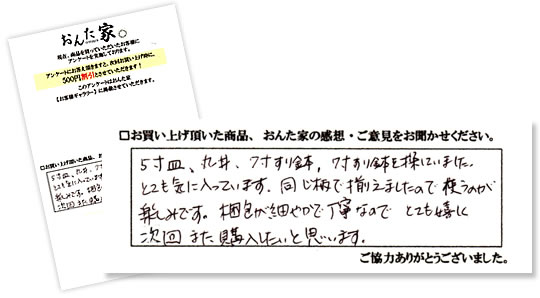 おんた家。
現在、商品を買っていただいたお客様に
アンケートを実施しております。
アンケートにお答え頂きますと、次回お買い上げ時に、
500円割引とさせていただきます!
このアンケートはおんた家
【お客様ギャラリー】に掲載させていただきます。
□お買い上げ頂いた商品、お
5寸皿、丸丼、7寸
とても気に入っています。
楽しみです。梱包
次回 また 購
□お買い上げ頂いた商品、おんた家の感想・ご意見をお聞かせください。
5寸皿、丸丼、7寸すり鉢、7寸すり鉢を探していました。
とても気に入っています。同じ柄で揃えましたので使うのが
楽しみです。梱包が細やかで丁寧なので とても嬉しく
次回 また 購入したいと思います。
ご協力ありがとうございました。